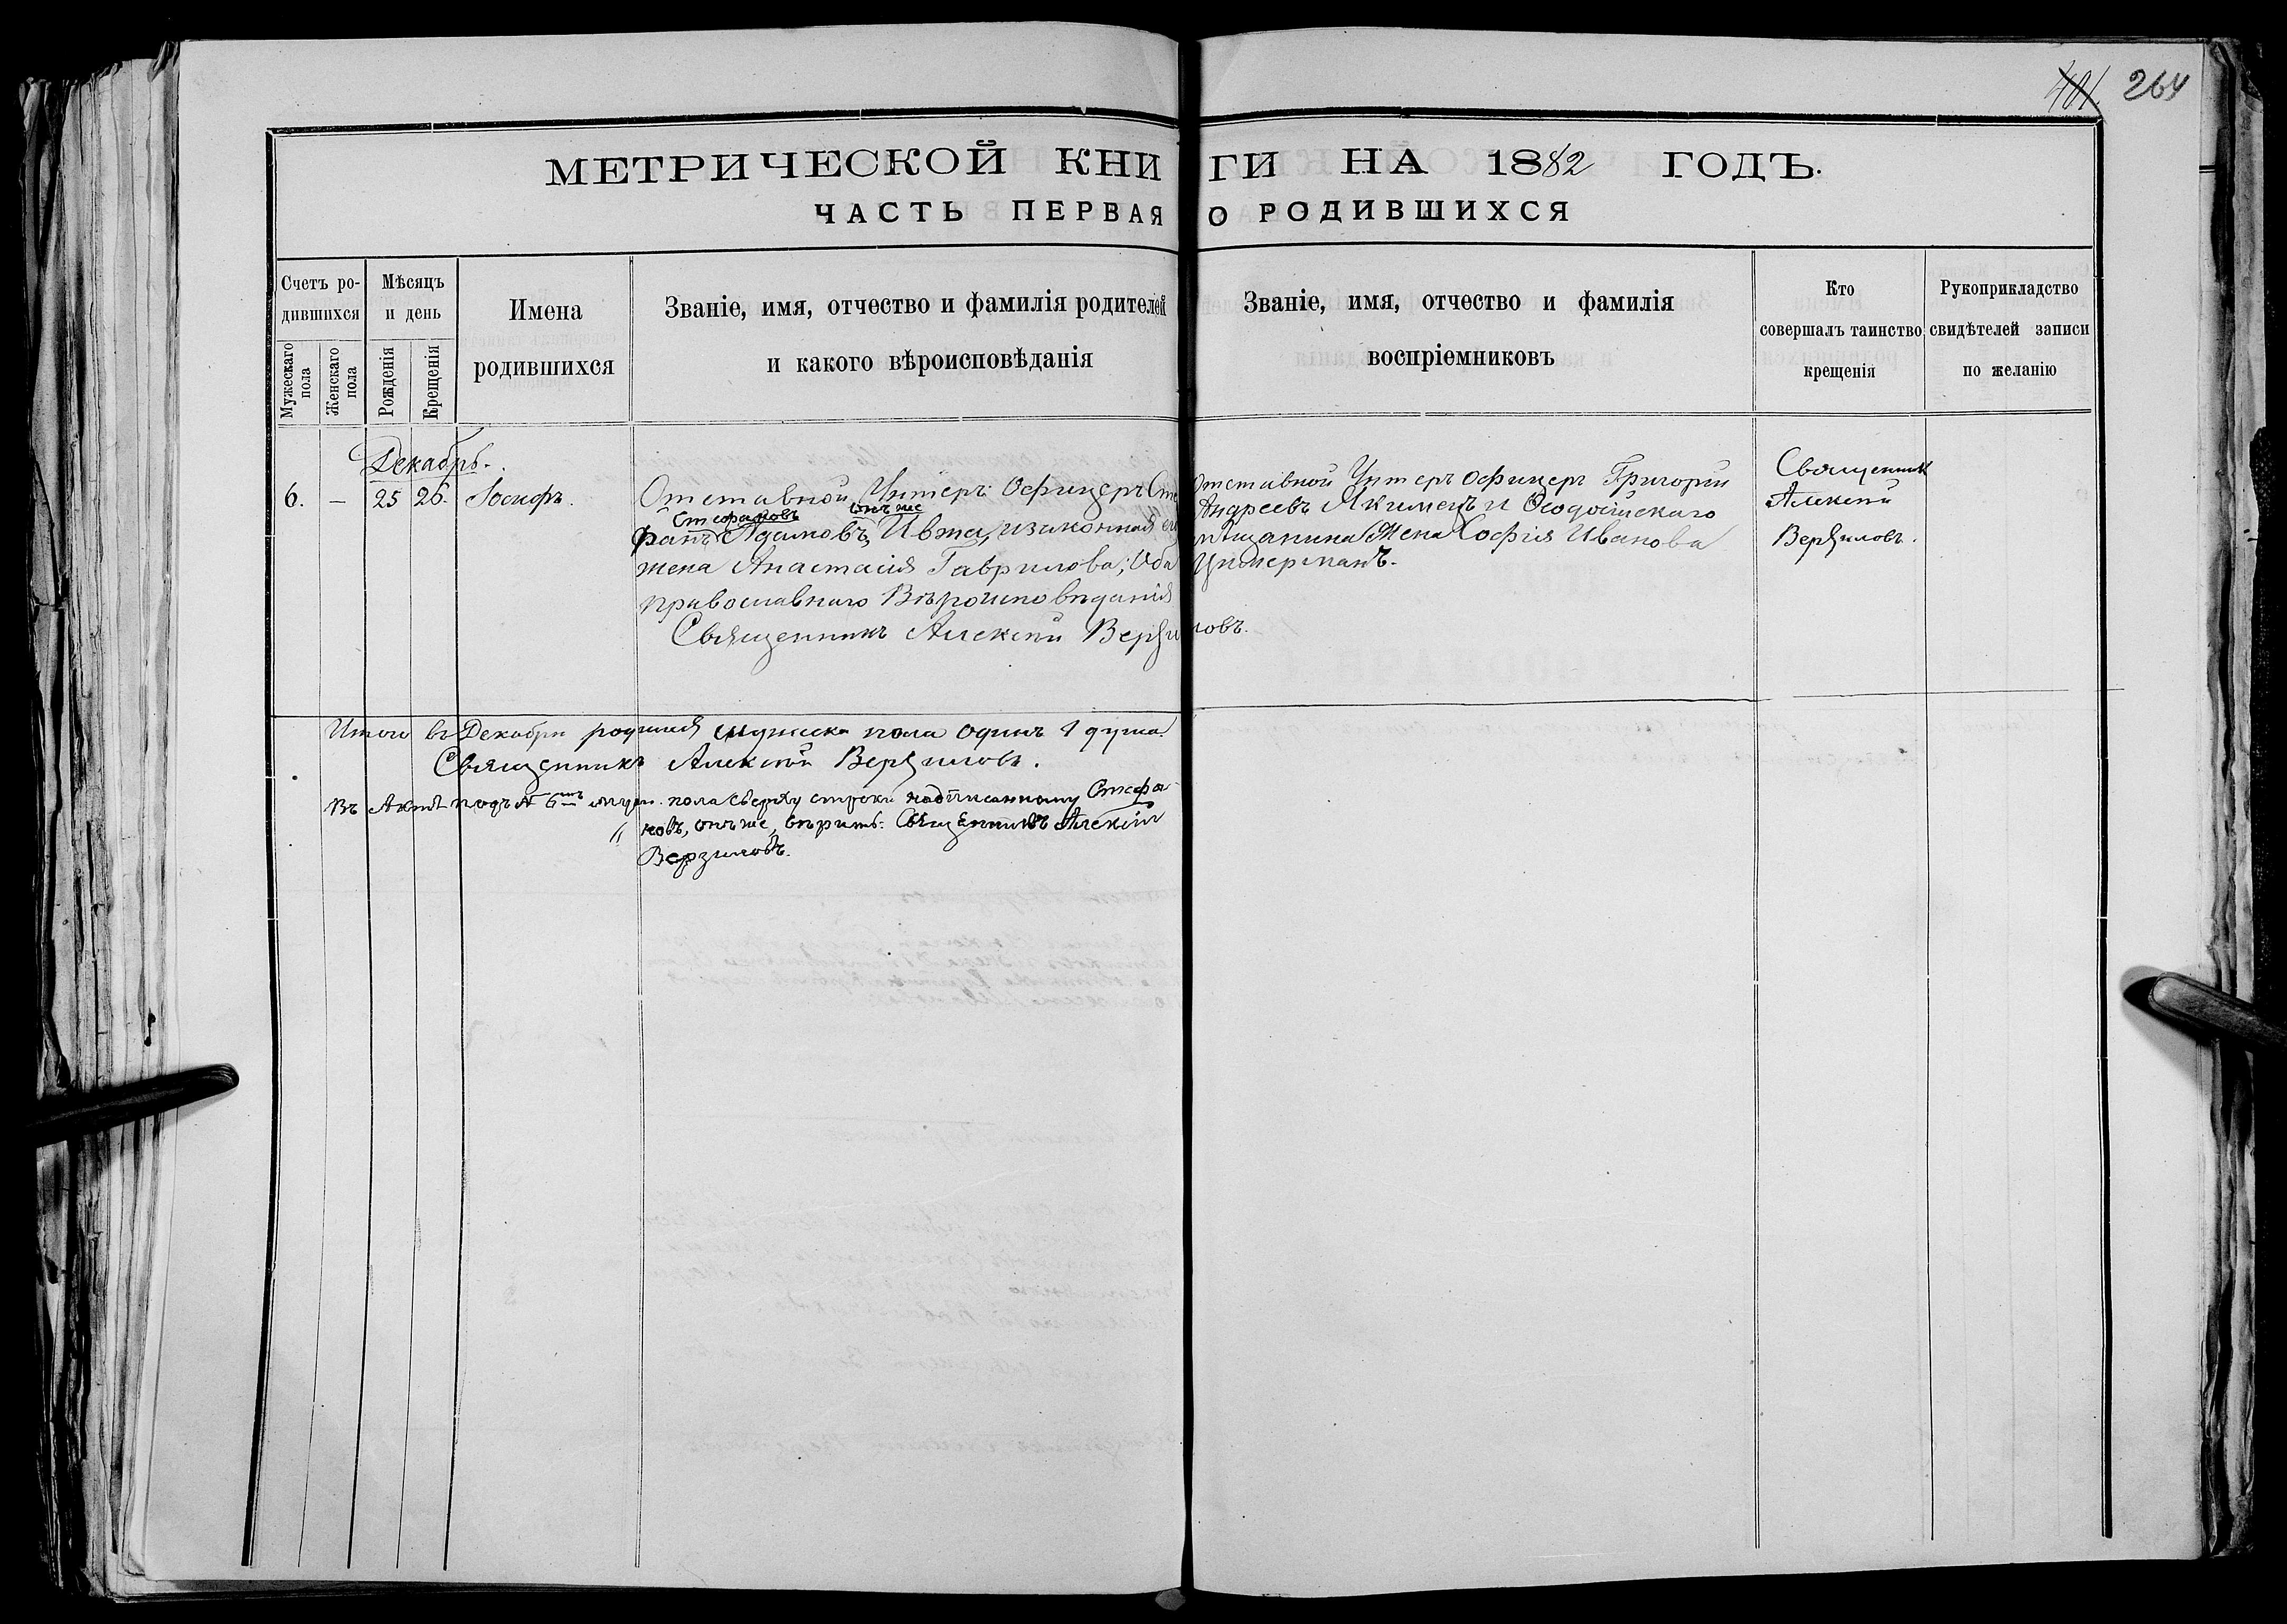 401 264
МЕТРИЧЕСКОЙ КНИГИ НА 1882 ГОДЪ.
ЧАСТЬ ПЕРВАЯ О РОДИВШИХСЯ
Счетъ ро-
дившихся
Мужескаго
пола
Женскаго
пола
Мѣсяцъ
и день
Рожденія
Крещенія
Имена
родившихся
Званіе, имя, отчество и фамилія родителей
и какого вѣроисповѣданія
Званіе, имя, отчество и фамилія
воспріемниковъ
Кто
совершалъ таинство
крещенія
Рукоприкладство
свидѣтелей записи
по желанію
Декабрь.
6. — 25 26. Іосифъ.
Отставной Унтеръ Офицеръ Сте
Стефановъ онъ же
фанъ Адамовъ, Ивта, и законная его
жена Анастасія Гаврилова; Оба
Православнаго Вѣроисповѣданія
Священникъ Алексѣй Верзиловъ.
Отставной Унтеръ Офицеръ Григорій
Андреевъ Якимецъ и Ѳеодосійскаго
мѣщанина Жена Софія Иванова
Цимерманъ.
Священникъ
Алексѣй
Верзиловъ.
Итого въ Декабрѣ родился мужеска пола одинъ 1 душа.
Священникъ Алексѣй Верзиловъ.
Въ Актѣ подъ № 6мъ муж. пола сверху строки надписанному Стефа-
новъ, онъ же, вѣрить: Священникъ Алексѣй
Верзиловъ.